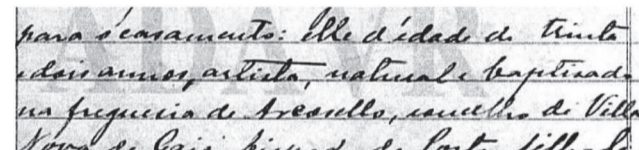 para o casamento: elle d'édade de trinta
e dois annos, artista, natural e baptisado
na freguesia de Arcosello, concelho de Villa
Nova de Gaia
ADAVR